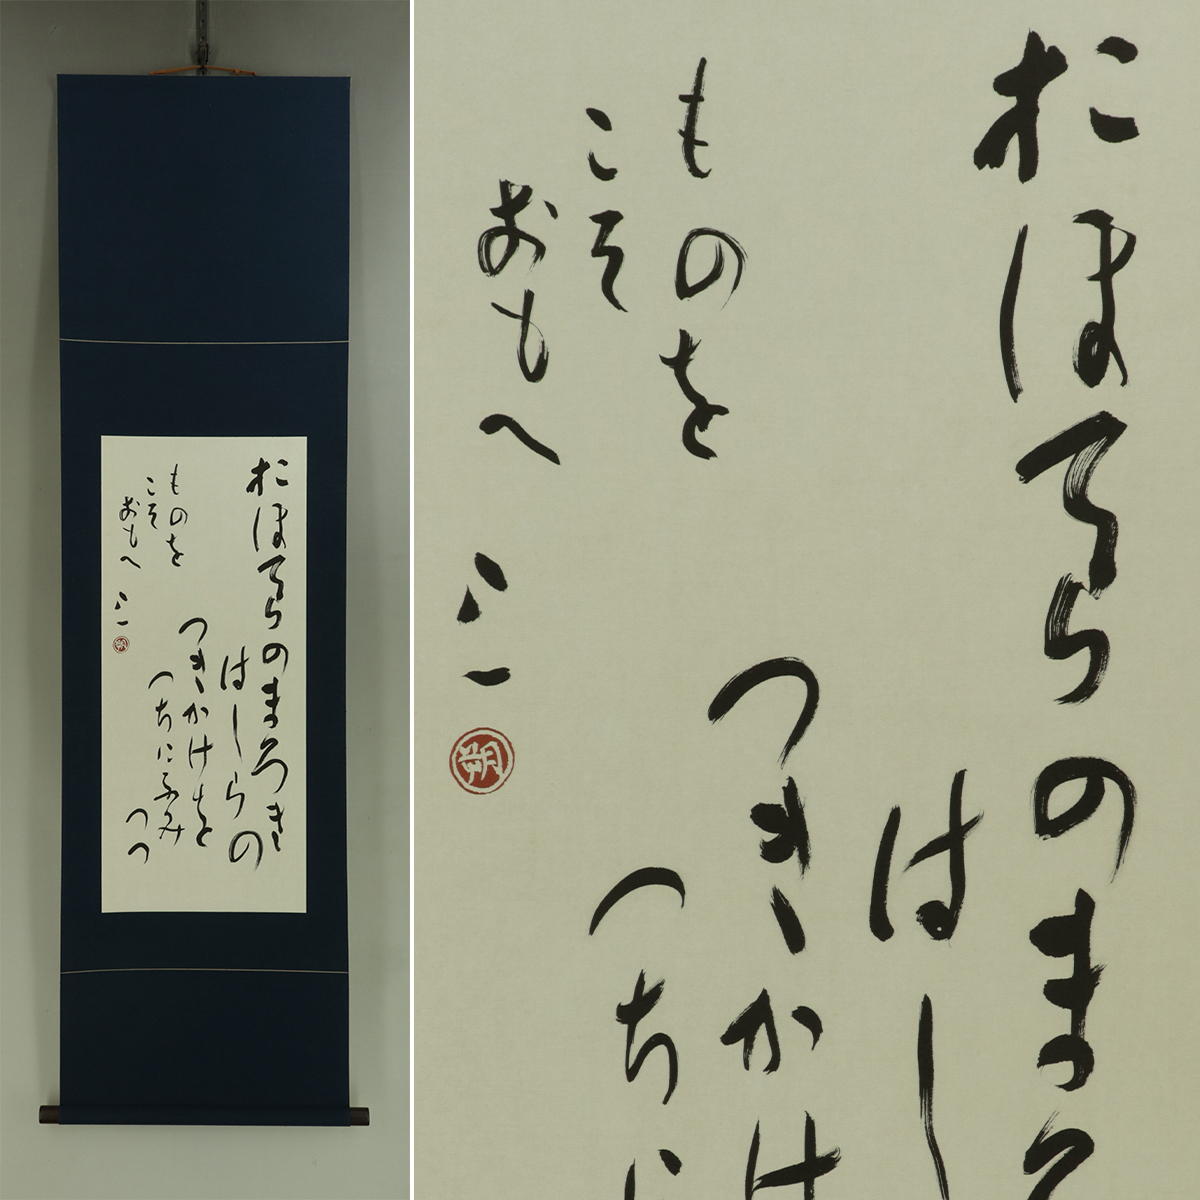 おほてらのまろき
はしらの
つきかけを
つちにふみ
つつ
ものを
こそ
おもへ
八一
朔
おほてらのまろ
はし
つきかけ
つちに
ものを
こそ
おもへ
八一
朔